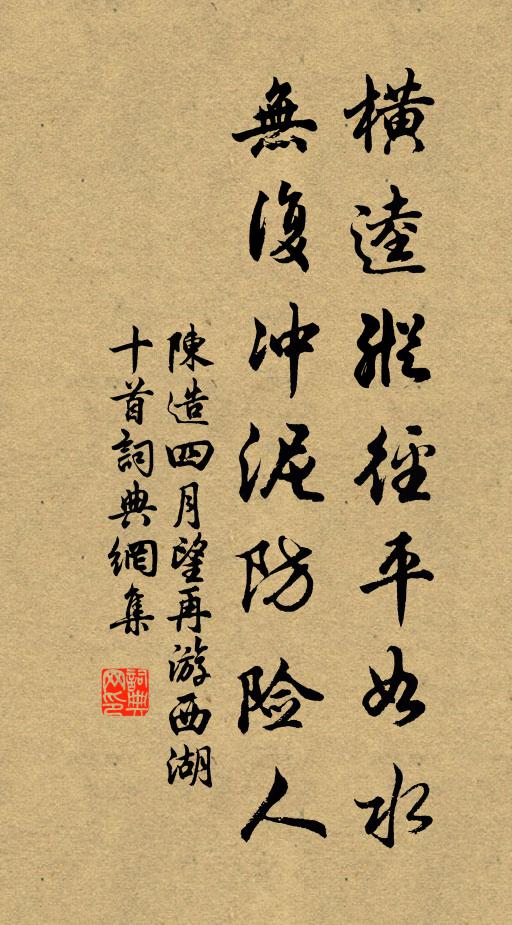 橫逵縱徑平如水
無復冲泥防险人
陳造四月望再游西湖
十首詞典網集
詞典网印